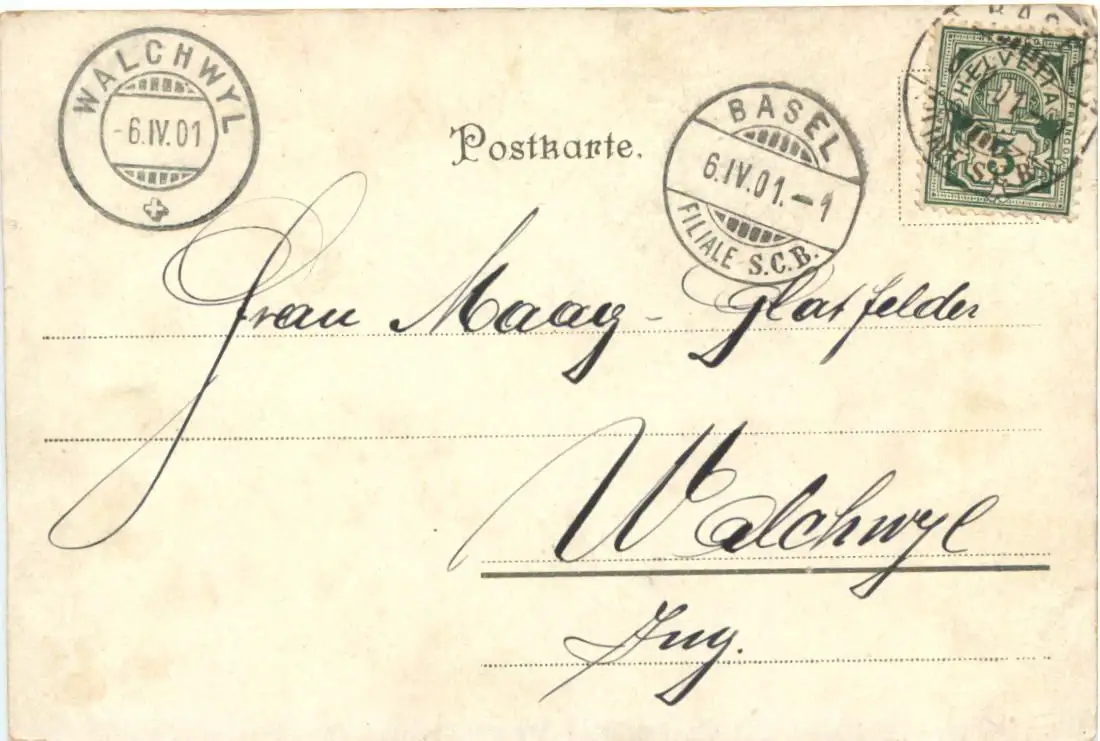 WALCHWYL
-6.IV.01
Postkarte.
BASEL
6.IV.01.-1
FILIALE S.C.B.
HELVETIA
FRANCO
5
S.C.B.
Frau Maag - Glatfelder
Walchwyl
Zug.